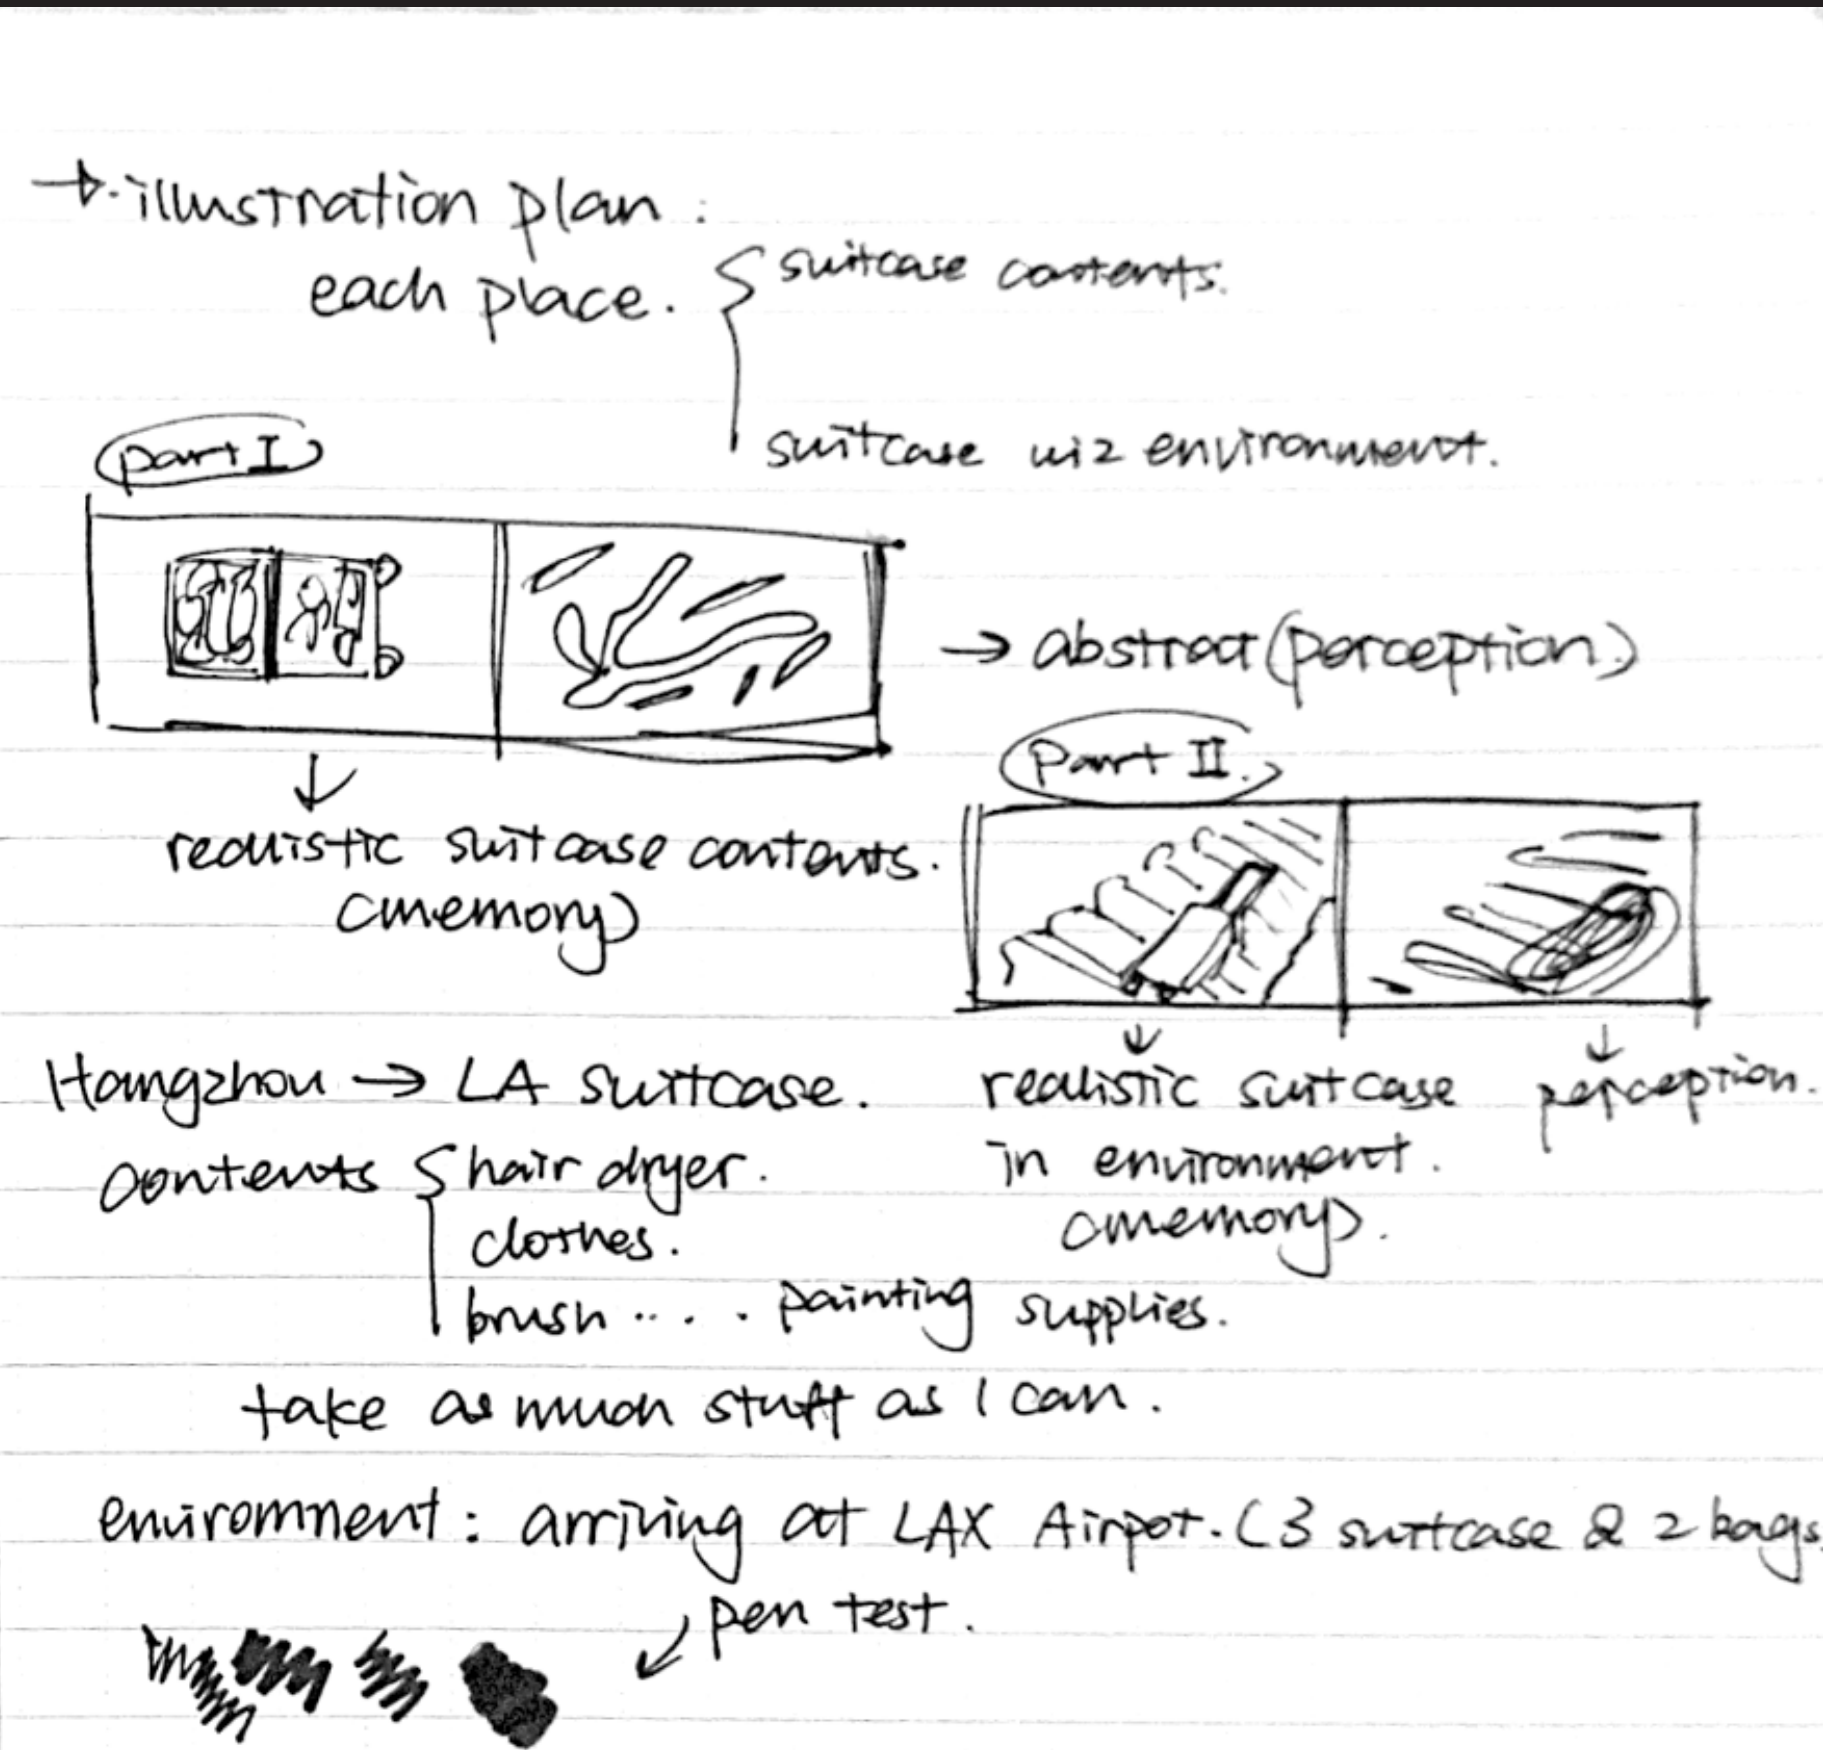 illustration plan :
each place.
suitcase contents.
suitcase wiz environment.
part I
→ abstract (perception)
realistic suitcase contents.
(memory)
Part II.
realistic suitcase
in environment.
(memory).
perception.
Hangzhou → LA suitcase.
contents
hair dryer.
clothes.
brush ... . painting supplies.
take as much stuff as I can.
enviromnent : arriving at LAX Airpot. (3 suitcase & 2 bags.
pen test.